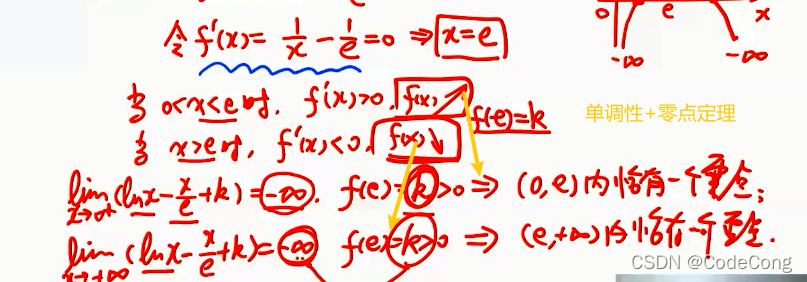 令 f'(x) = 1/x - 1/e = 0 ⇒ x=e
0 e x
-∞ -∞
当 0<x<e时, f'(x)>0, f(x)↗
f(e)=k
单调性+零点定理
当 x>e时, f'(x)<0, f(x)↘
lim x→0+ (lnx - x/e + k) = -∞. f(e)=k>0 ⇒ (0,e)内恰有一个零点;
lim x→+∞ (lnx - x/e + k) = -∞ f(e)=k>0 ⇒ (e,+∞)内恰有一个零点.
CSDN @CodeCong